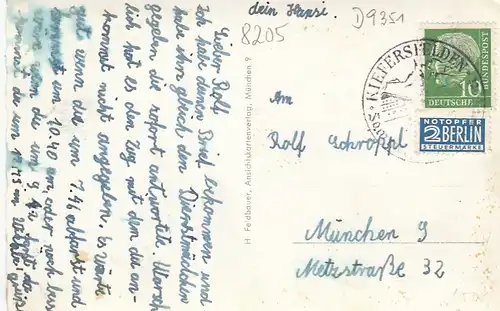 dein Hansi.
8205
D9351
Lieber Rolf,
Ich habe deinen Brief bekommen und
habe ihn gleich den Dienstmädchen
gegeben die sofort antwortete. Warsch
lich hat es den Zug mit dem du an-
kommst nicht angegeben. Es wäre
gut wenn du am 7.4. abfaust und
kommst um 10.40 an, oder noch bes
wäre wenn du um 9
H Feldbauer, Ansichtskartenverlag, München 9
KIEFERSFELDEN
10
DEUTSCHE
BUNDESPOST
NOTOPFER
2 BERLIN
STEUERMARKE
Am
Rolf
München 9
Metzstraße 32